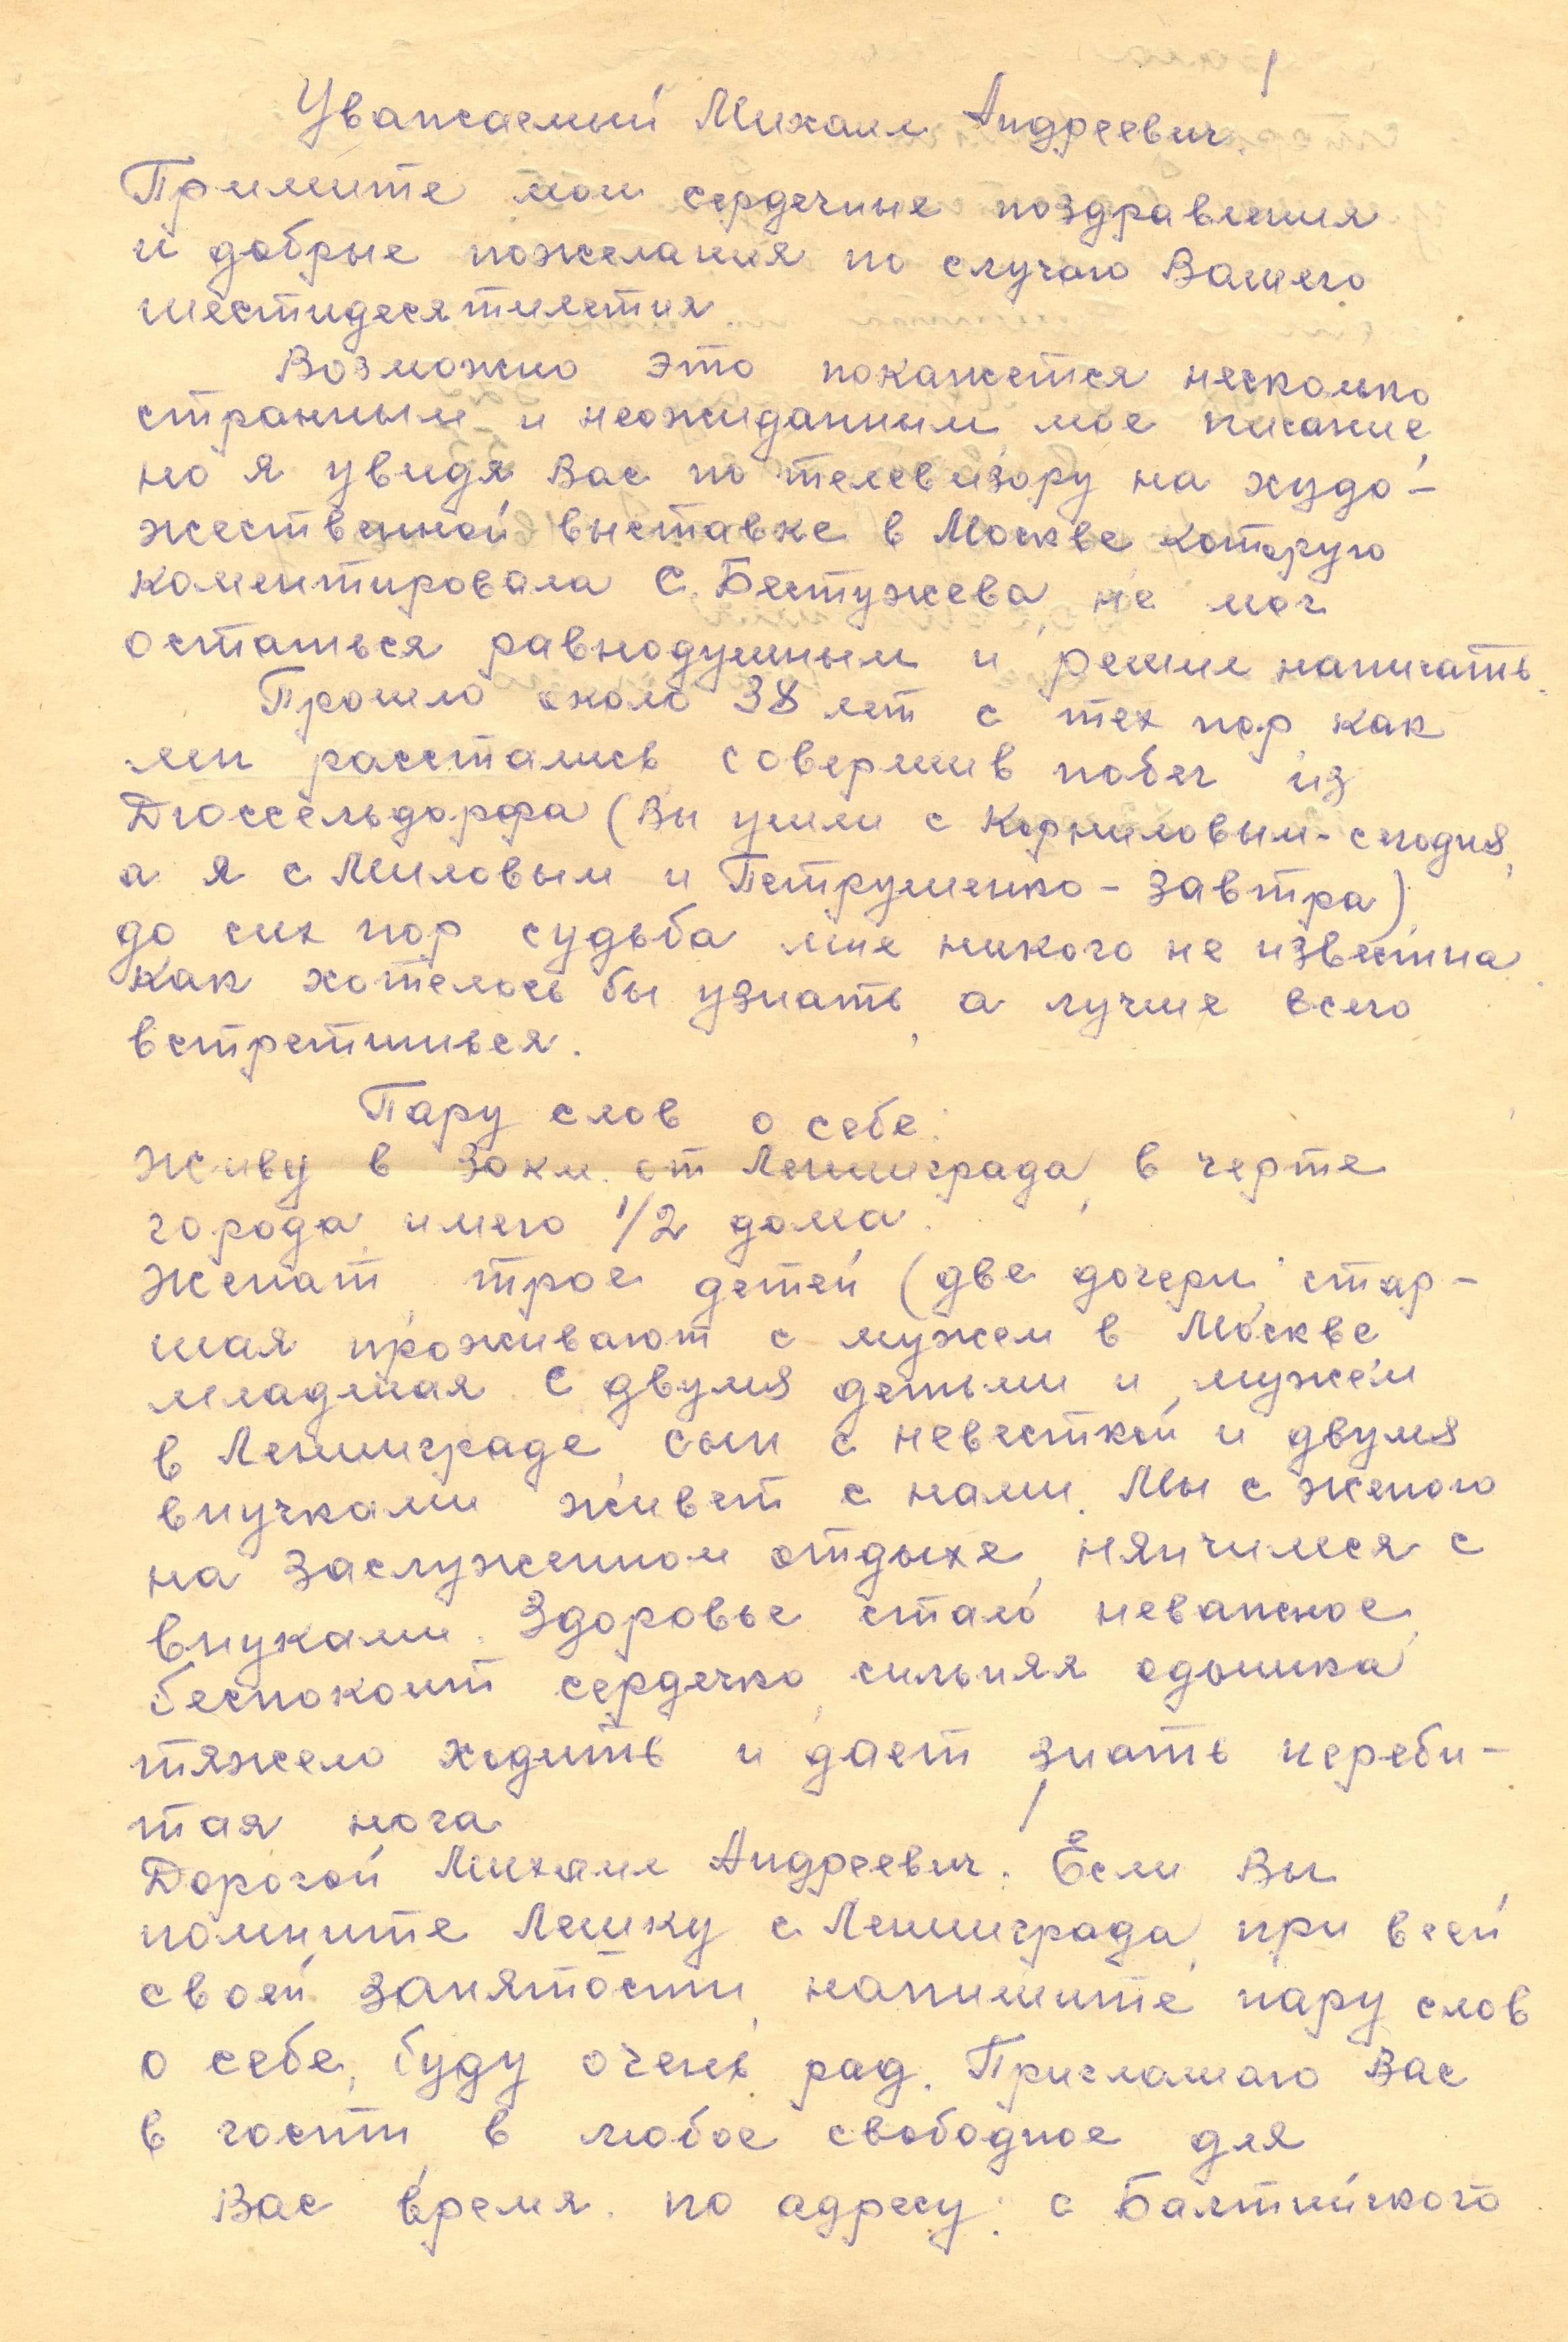 Уважаемый Михаил Андреевич!
Примите мои сердечные поздравления
и добрые пожелания по случаю Вашего
шестидесятилетия
Возможно это покажется несколько
странным и неожиданным мое писание,
но я увидя Вас по телевизору на худо-
жественной выставке в Москве, которую
коментировала С. Бестужева, не мог
остаться равнодушным и решил написать.
Прошло около 38 лет с тех пор, как
мы расстались, совершив побег из
Дюссельдорфа (Вы ушли с Корниловым - сегодня,
а я с Миловым и Петрушенко - завтра)
до сих пор судьба мне никого не известна.
Как хотелось бы узнать, а лучше всего
встретиться.
Пару слов о себе:
Живу в 30 км. от Ленинграда, в черте
города, имею 1/2 дома.
Женат, трое детей (две дочери, стар-
шая проживают с мужем в Москве
младшая с двумя детьми и мужем
в Ленинграде, сын с невесткой и двумя
внучками живет с нами. Мы с женою
на заслуженном отдыхе, нянчимся с
внуками. Здоровье стало неважное,
беспокоит сердечко, сильная одышка
тяжело ходить и дает знать переби-
тая нога
Дорогой Михаил Андреевич! Если Вы
помните Лешку с Ленинграда, при всей
своей занятости, напишите пару слов
о себе, буду очень рад. Приглашаю Вас
в гости в любое свободное для
Вас время. по адресу: с Балтийского